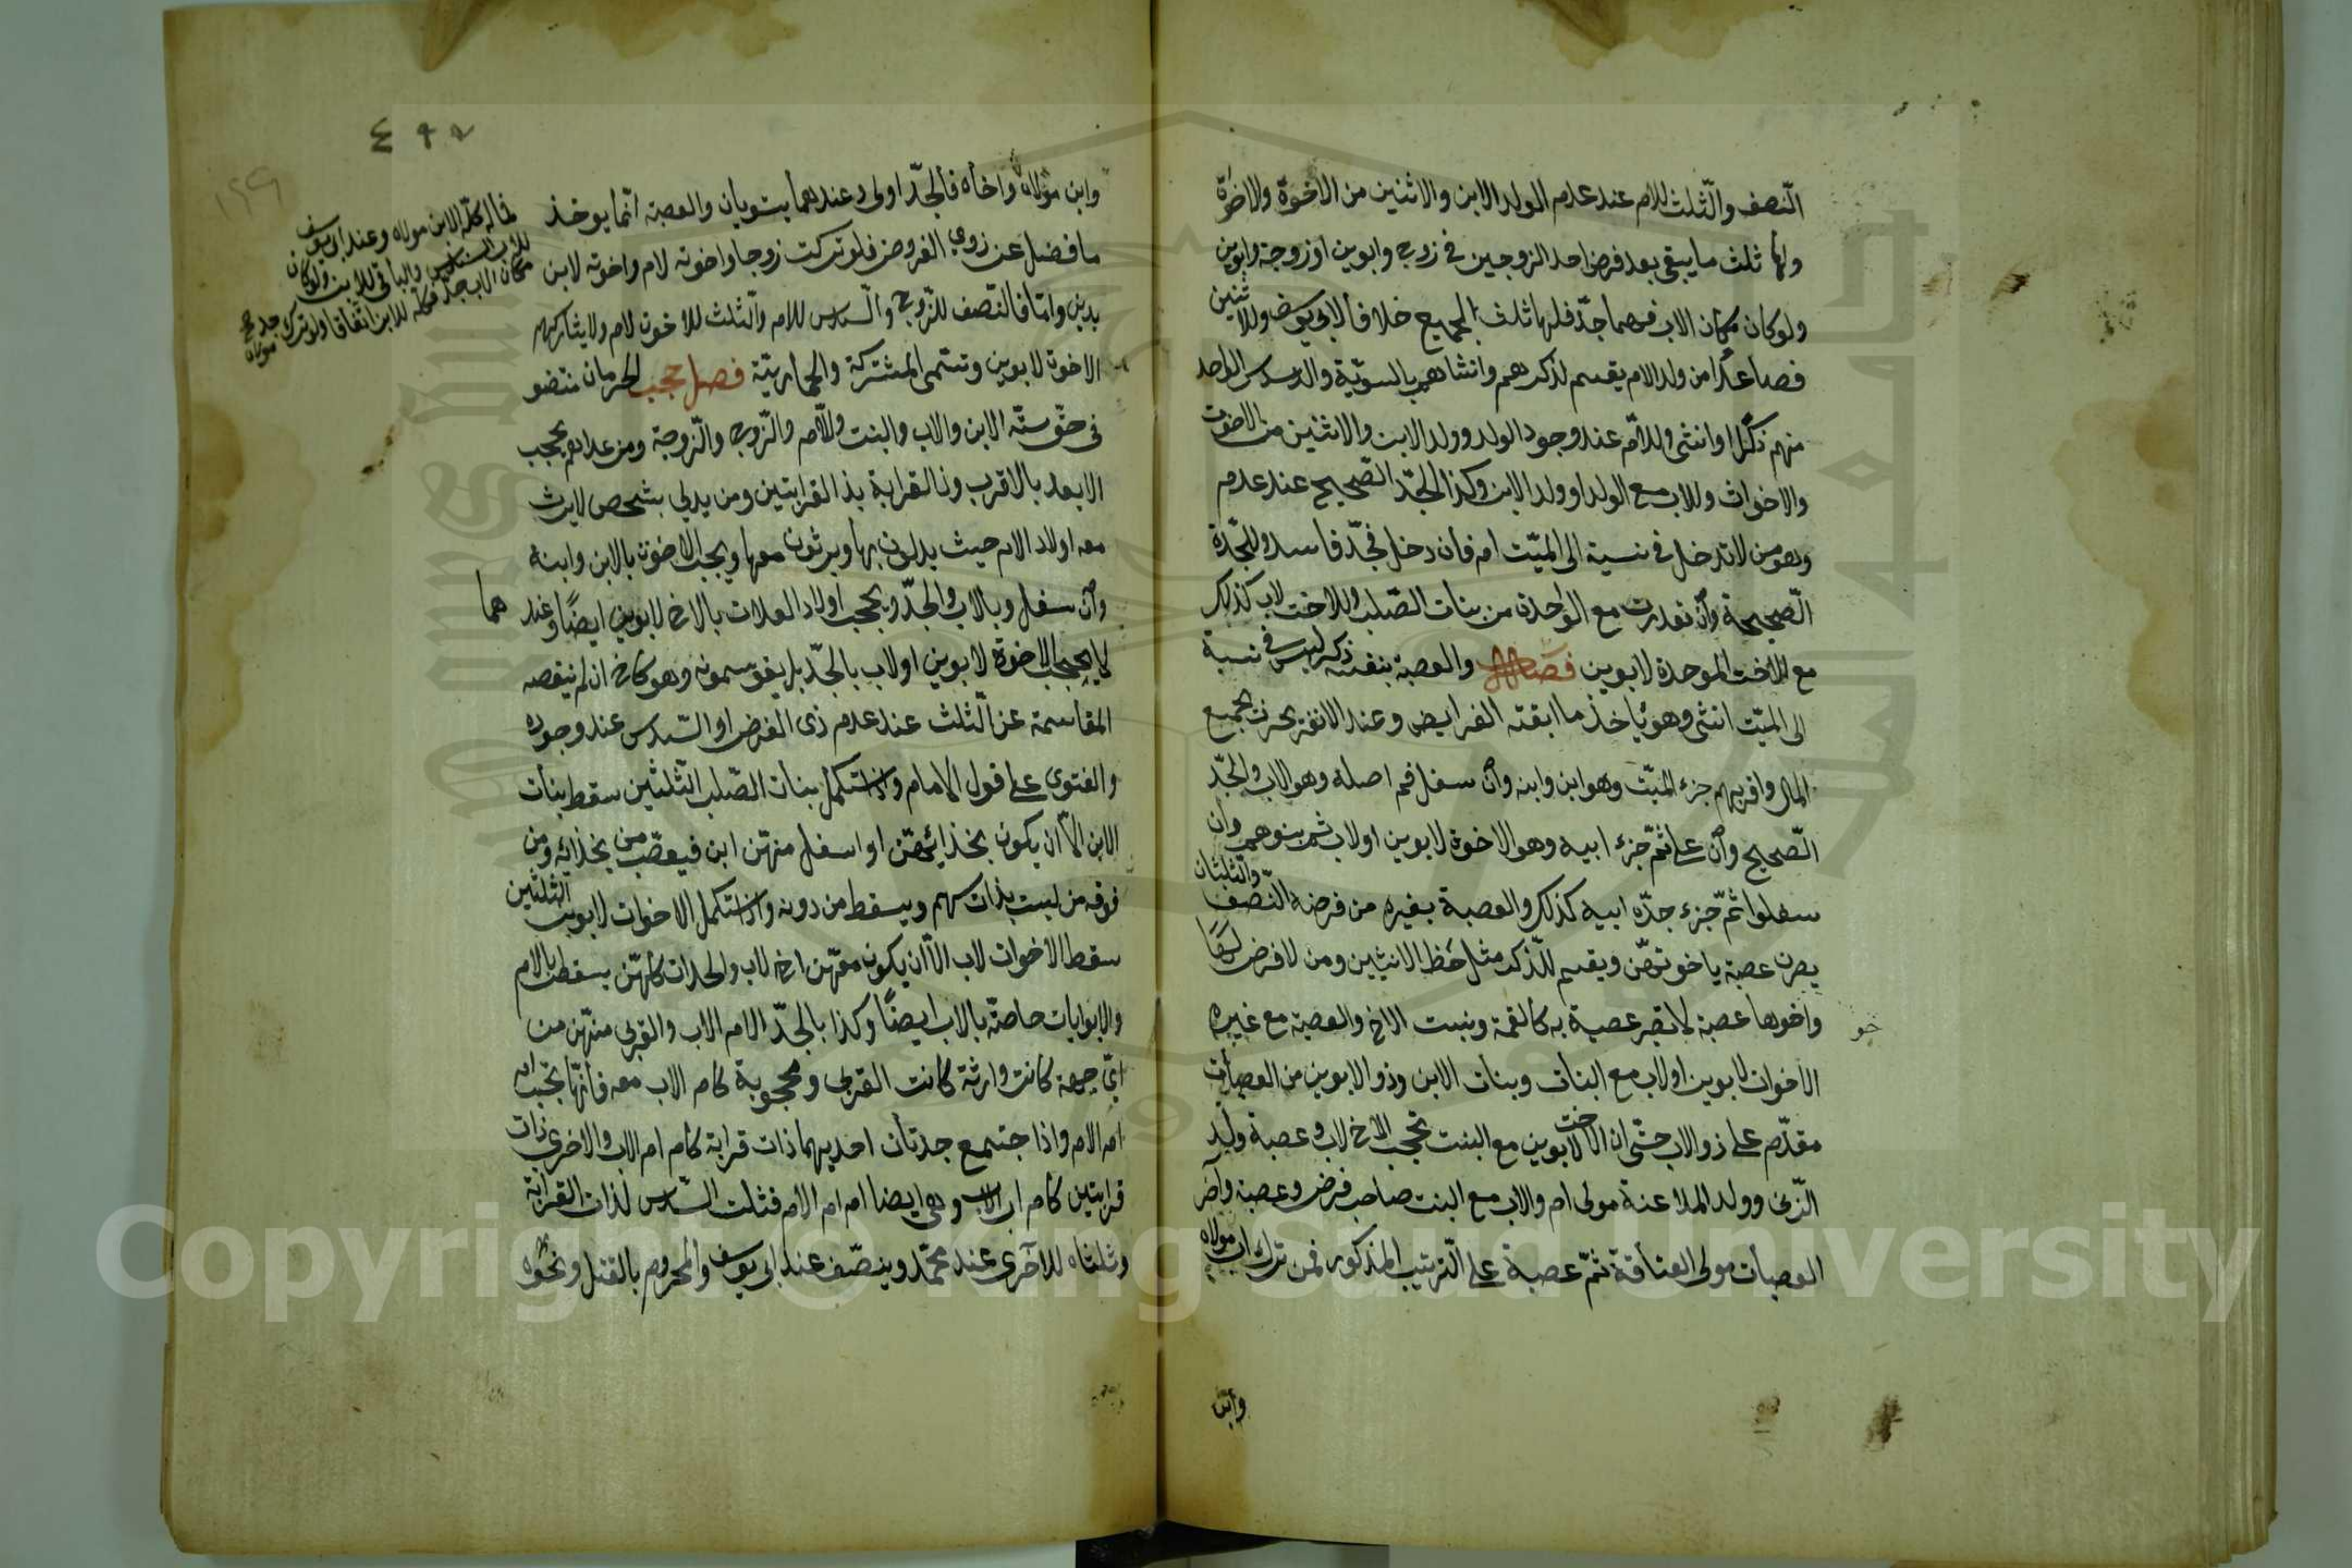 النصف والثلث للام عند عدم الولد الابن والاثنين من الاخوة والاخوة
ولها ثلث ما يبقى بعد فرض احد الزوجين في زوج وابوين او زوجة وابوين
ولو كان مكان الاب فيهما جد فلها ثلث الجميع خلافا لابي يوسف وللاثنين
فصاعدا من ولد الام يقسم لذكرهم وانثاهم بالسوية والسدس للواحد
منهم ذكرا او انثى وللام عند وجود الولد وولد الابن والاثنين من الاخوة
والاخوات وللاب مع الولد او ولد الابن وكذا للجد الصحيح عند عدم
وهو من لا تدخل في نسبة الى الميت ام فان دخل فجد فاسد وللجدة
الصحيحة وان تعددت مع الواحدة من بنات الصلب وللاخت لاب كذلك
مع الاخت الموحدة لابوين فصل والعصبة بنفسه ذكر ليس في نسبة
الى الميت انثى وهو ياخذ ما ابقته الفرايض وعند الانفراد يحرز جميع
المال واقربهم جزء الميت وهو ابن وابنه وان سفل ثم اصله وهو الاب والجد
الصحيح وان علا ثم جزء ابيه وهو الاخوة لابوين او لاب ثم بنوهم وان
سفلوا ثم جزء جده ابيه كذلك والعصبة بغيره من فرضه النصف والثلثان
يصرن عصبة باخوتهن ويقسم للذكر مثل حظ الانثيين ومن لا فرض لها
واخوها عصبة لا تصير عصبة به كالعمة وبنت الاخ والعصبة مع غيره
الاخوات لابوين او لاب مع البنات وبنات الابن وذو الابوين من العصبات
مقدم على ذو الاب حتى ان الاخت لابوين مع البنت تحجب الاخ لاب وعصبة ولد
الزنى وولد الملاعنة مولى ام والاب مع البنت صاحب فرض وعصبة وآخر
العصبات مولى العتاقة ثم عصبة على الترتيب المذكور فمن ترك اب مولاه
وابن
٤٩٧
١٢٩
وابن مولاه واخاه فالجد اولى وعندهما يستويان والعصبة انما يوخذ
ما فضل عن ذوي الفروض فلو تركت زوجا واخوة لام واخوة لابن
بدين واما فالنصف للزوج والسدس للام والثلث للاخوة لام ولا يشاركهم
الاخوة لابوين وتسمى المشتركة والحمارية فصل حجب الحرمان منتفو
في حق ستة الابن والاب والبنت والام والزوج والزوجة ومن عداهم يحجب
الابعد بالاقرب وذا القرابة بذا القرابتين ومن يدلي بشخص لا يرث
معه اولاد الام حيث يدلون بها ويرثون معها ويحجب الاخوة بالابن وابنه
وان سفل وبالاب والجد ويحجب اولاد العلات بالاخ لابوين ايضا وعند هما
لا يحجب الاخوة لابوين او لاب بالجد بل يقوسمونه وهو كاخ ان لم ينقصه
المقاسمة عن الثلث عند عدم ذى الفرض او السدس عند وجوده
والفتوى على قول الامام واذا استكمل بنات الصلب الثلثين سقط بنات
الابن الا ان يكون بحذائهن او اسفل منهن ابن فيعصب من بحذائه ومن
فوقه من ليست بذات سهم ويسقط من دونه واذا استكمل الاخوات لابوين الثلثين
سقط الاخوات لاب الا ان يكون معهن اخ لاب والجدات كلهن يسقط بالام
والابوايات خاصة بالاب ايضا وكذا بالجد الا ام الاب والقربى منهن من
اي جهة كانت وارثة كانت القربى ومحجوبة كام الاب معه فانها تحجب ام
ام الام واذا اجتمع جدتان احديهما ذات قرابة كام ام الاب والاخرى ذات
قرابتين كام اب الاب وهى ايضا ام ام الام فثلث السدس لذات القرابة
وثلثاه للاخرى عند محمد وينصف عند ابي يوسف والمحروم بالقتل ونحوه
فماله كله لابن مولاه وعند ابي يوسف
للاب السدس والباقى للابن ولو كان
مكان الاب جد فكله للابن اتفاقا ولو ترك جد
مولاه